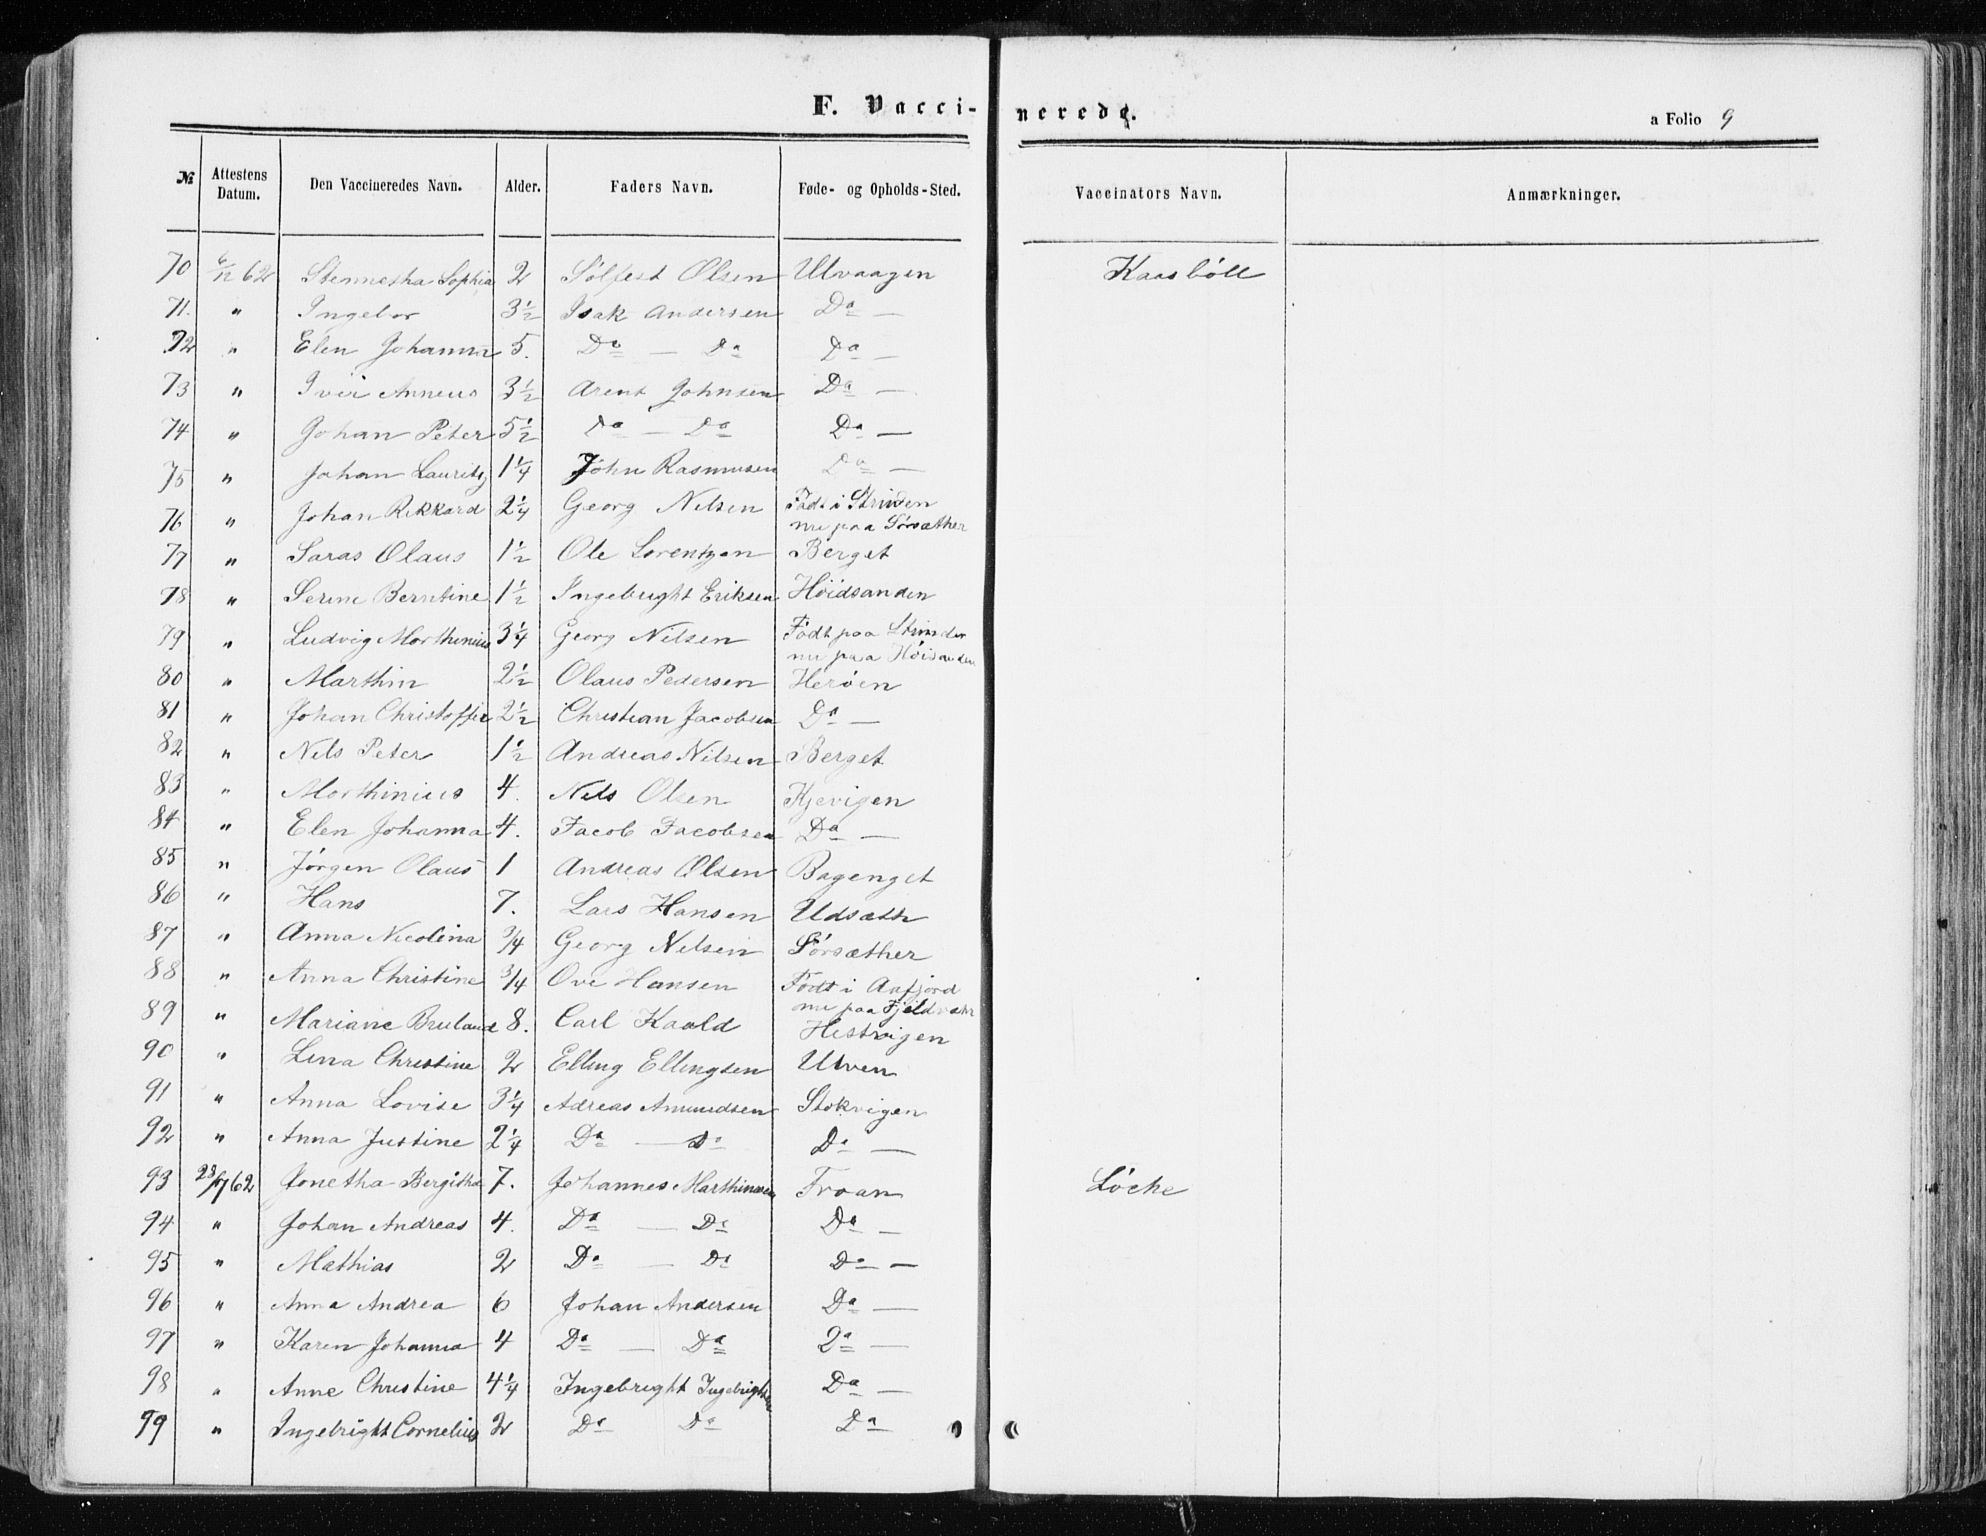 F. Vacci-nerede.
a Folio 9
№ Attestens Datum. Den Vaccineredes Navn. Alder. Faders Navn. Føde- og Opholds-Sted. Vaccinators Navn. Anmærkninger.
70 6/12 62 Stennetha Sophia 2 Sølfest Olsen Ulvaagen Kaasbøll
71. " Ingebor 3½ Isak Andersen Da —
72 " Elen Johanna 5. Da — Da Da —
73 " Iver Anneus 3½ Arent Johnsen Da —
74 " Johan Peter 5½ Da — Da Da —
75 " Johan Lauritz 1¼ John Rasmusen Da —
76 " Johan Rikkard 2¼ Georg Nilsen Født i Strinden
nu paa Sørsæther
77 " Saras Olaus 1½ Ole Lorentzen Berget
78 " Serine Berntine 1½ Ingebright Eriksen Høidsanden
79 " Ludvig Morthinius 3¼ Georg Nilsen Født paa Strinden
nu paa Høisanden
80 " Marthin 2½ Olaus Pedersen Herøen
81 " Johan Christoffer 2½ Christian Jacobsen Da —
82 " Nils Peter 1½ Andreas Nilsen Berget
83 " Morthinius 4. Nils Olsen Kjevigen
84 " Elen Johanna 4. Jacob Jacobsen Da —
85 " Jørgen Olaus 1 Andreas Olsen Bagenget
86 " Hans 7. Lars Hansen Udsæth
87 " Anna Nicolina 3/4 Georg Nilsen Sørsæther
88 " Anna Christine 3/4 Ove Hansen Født i Aafjord
nu paa Fjeldvær
89 " Mariane Bruland 8. Carl Kaald Hestvigen
90 " Lina Christine 2 Elling Ellingsen Ulven
91 " Anna Lovise 3¼ Adreas Amundsen Stokvigen
92 " Anna Justine 2¼ Da — Da Da —
93 28/7 62 Jonetha Bergitha 7. Johannes Marthinusen Froan Løcke
94 " Johan Andreas 4. Da — Da Da —
95 " Mathias 2 Da — Da Da —
96 " Anna Andrea 6 Johan Andersen Da —
97 " Karen Johanna 4 Da — Da Da —
98 " Anne Christine 4¼ Ingebright Ingebrigtsen Da —
99 " Ingebright Cornelius 2 Da Da Da